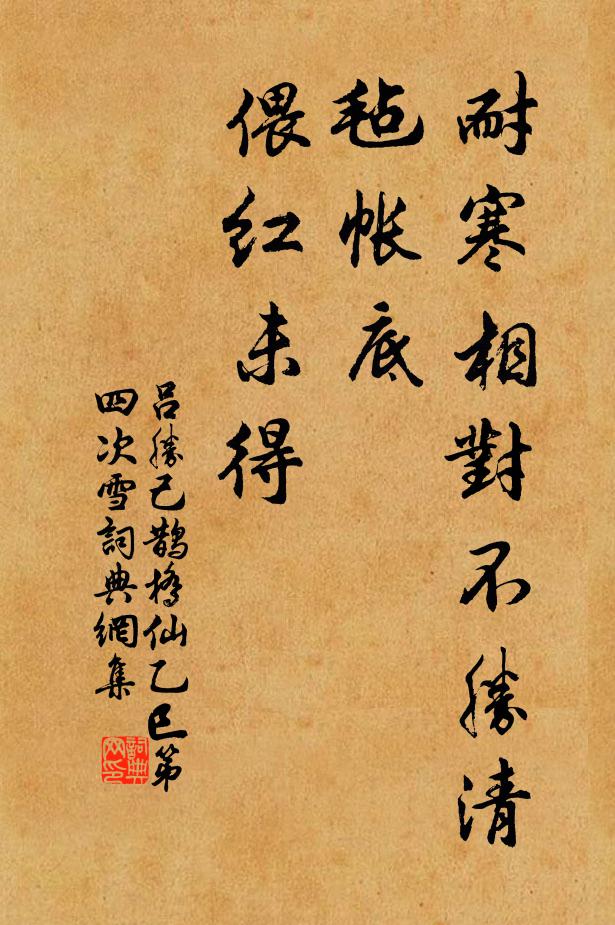 耐寒相對不勝清
毡帳底
偎红未得
吕勝己鵲橋仙乙巳第
四次雪詞典網集
詞典
网印